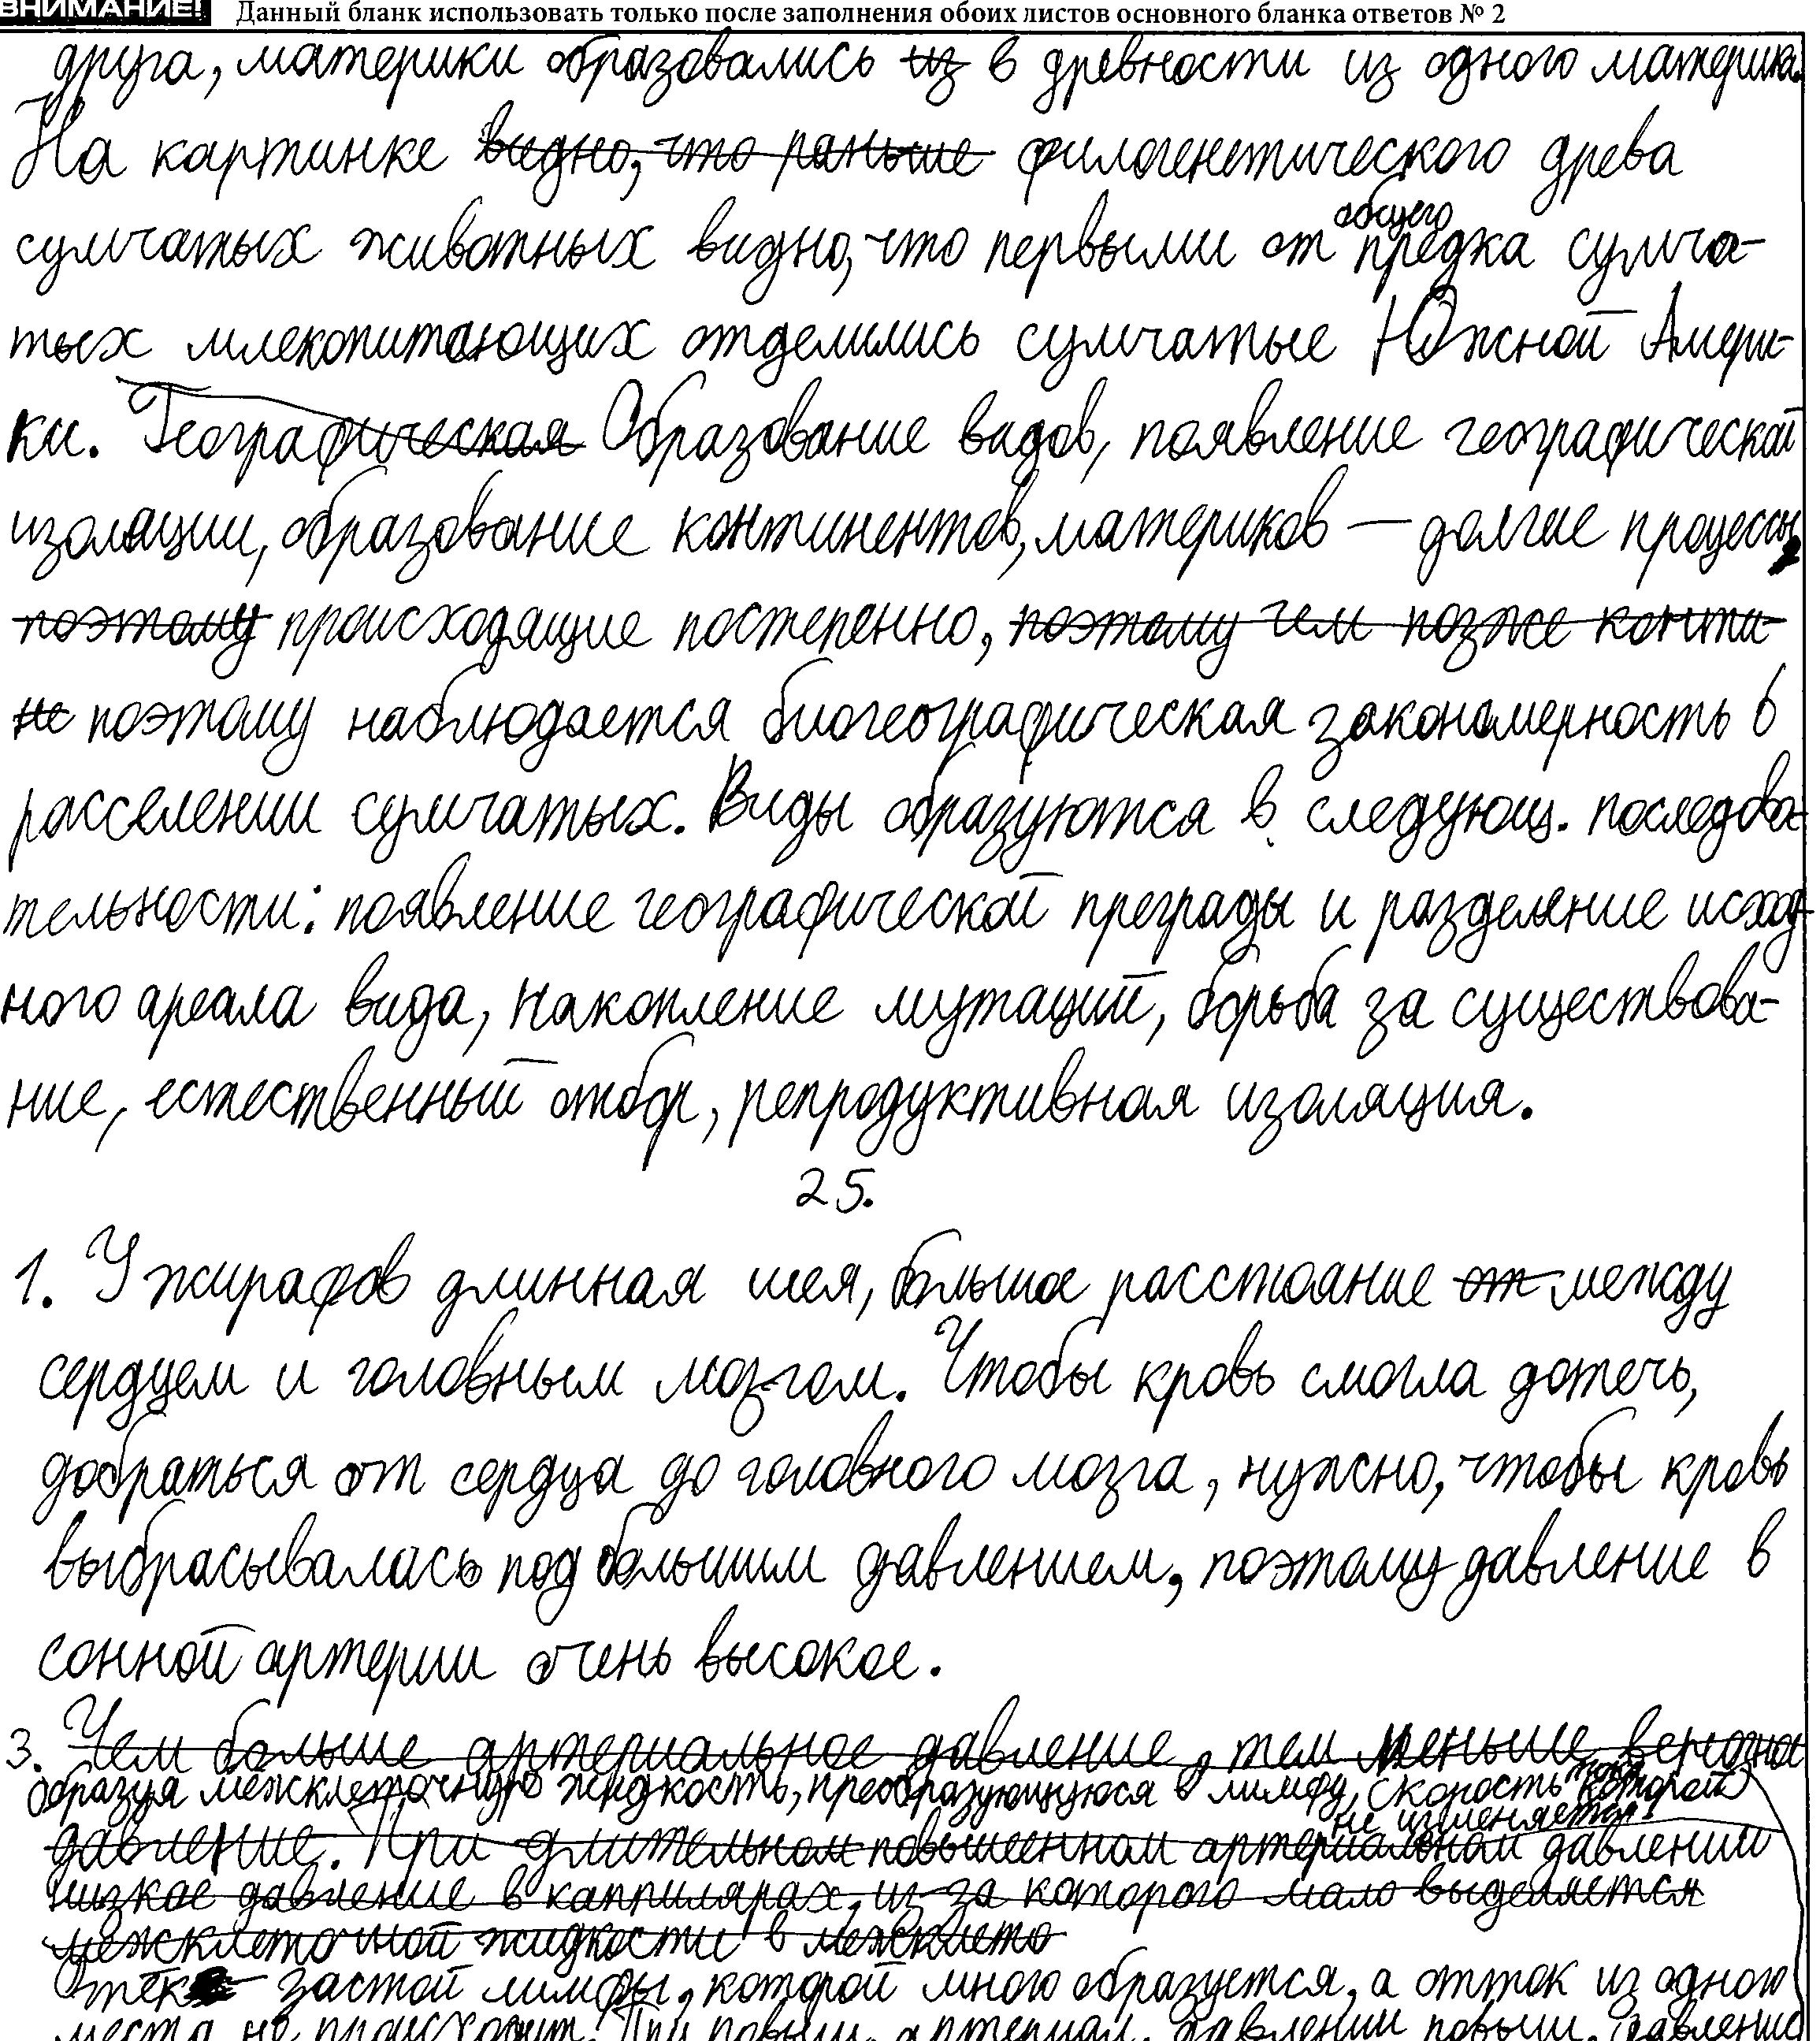 ВНИМАНИЕ! Данный бланк использовать только после заполнения обоих листов основного бланка ответов № 2
друга, материки образовались из в древности из одного материка.
На картинке видно, что раньше филогенетического древа
общего
сумчатых животных видно, что первыми от предка сумча-
тых млекопитающих отделились сумчатые Южной Амери-
ки. Географическая Образование видов, появление географической
изоляции, образование континентов, материков — долгие процессы,
поэтому происходящие постепенно, поэтому чем позже конти-
не поэтому наблюдается биогеографическая закономерность в
расселении сумчатых. Виды образуются в следующ. последова-
тельности: появление географической преграды и разделение исход-
ного ареала вида, накопление мутаций, борьба за существова-
ние, естественный отбор, репродуктивная изоляция.
25.
1. У жирафов длинная шея, большое расстояние от между
сердцем и головным мозгом. Чтобы кровь смогла дотечь,
добраться от сердца до головного мозга, нужно, чтобы кровь
выбрасывалась под большим давлением, поэтому давление в
сонной артерии очень высокое.
3. Чем больше артериальное давление, тем меньше
тока
образуя межклеточную жидкость, преобразующуюся в лимфу, скорость которой
не изменяется.
давление. При длительном повышенном артериальном давлении
низкое давление в каппилярах, из-за которого мало выделяется
межклеточной жидкости в межклето
Отёк застой лимфы, которой много образуется, а отток из одного
места не происходит. При повыш. артериал. давлении повыш. давление